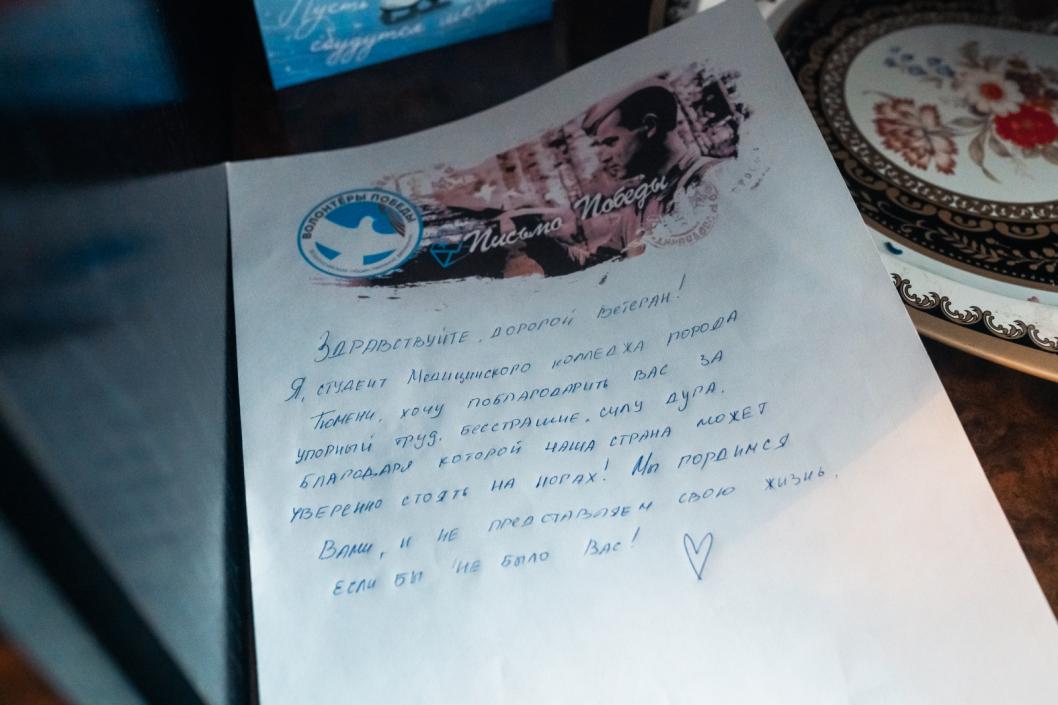 Пусть
сбудутся
ВОЛОНТЁРЫ ПОБЕДЫ
Письмо Победы
Здравствуйте, дорогой ветеран!
Я, студент Медицинского колледжа города
Тюмени, хочу поблагодарить вас за
упорный труд, бесстрашие, силу духа,
благодаря которой наша страна может
уверенно стоять на ногах! Мы гордимся
Вами, и не представляем свою жизнь,
если бы не было Вас!